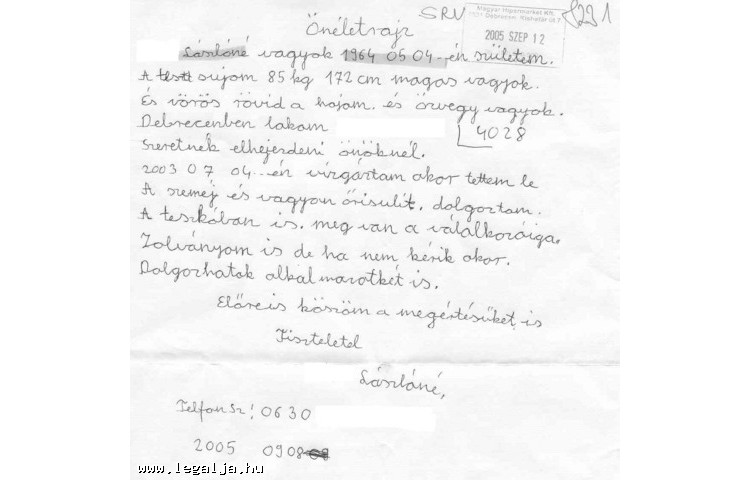 SRV
8231
Önéletrajz
Magyar Hipermarket Kft.
2005 SZEP 12
Lászlóné vagyok 1964 05 04.-én születem.
A testt sujom 85 kg 172 cm magas vagyok.
És vörös rövid a hajam. és özvegy vagyok.
Debrecenben lakam
4028
Szeretnek elhejezdeni önöknél.
2003 07 04..-én vizgáztam akor tettem le
A szeméj és vagyon őrisulit. dolgoztam.
A teszkóban is. meg van a válalkozáiga.
Zolványom is de ha nem kérik akor.
Dolgozhatok alkalmazotkét is.
Előreis köszöm a megértésüket is
Tiszteletel
Lászlóné,
Telfon Sz! 06 30
2005 09 08
www.legalja.hu